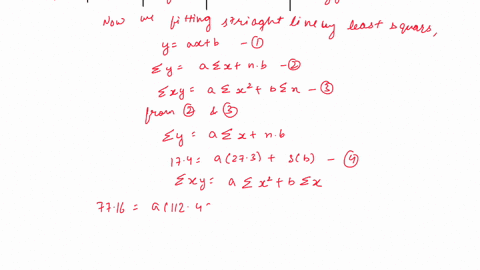 Now we fitting striaght line by least squars,
y = ax+b - ①
Σy = aΣx + n.b - ②
Σxy = aΣx² + bΣn - ③
from ② & ③
Σy = aΣx + n.b
17.4 = a(27.3) + 5(b) - ④
Σxy = aΣx² + bΣx
77.16 = a(112.4